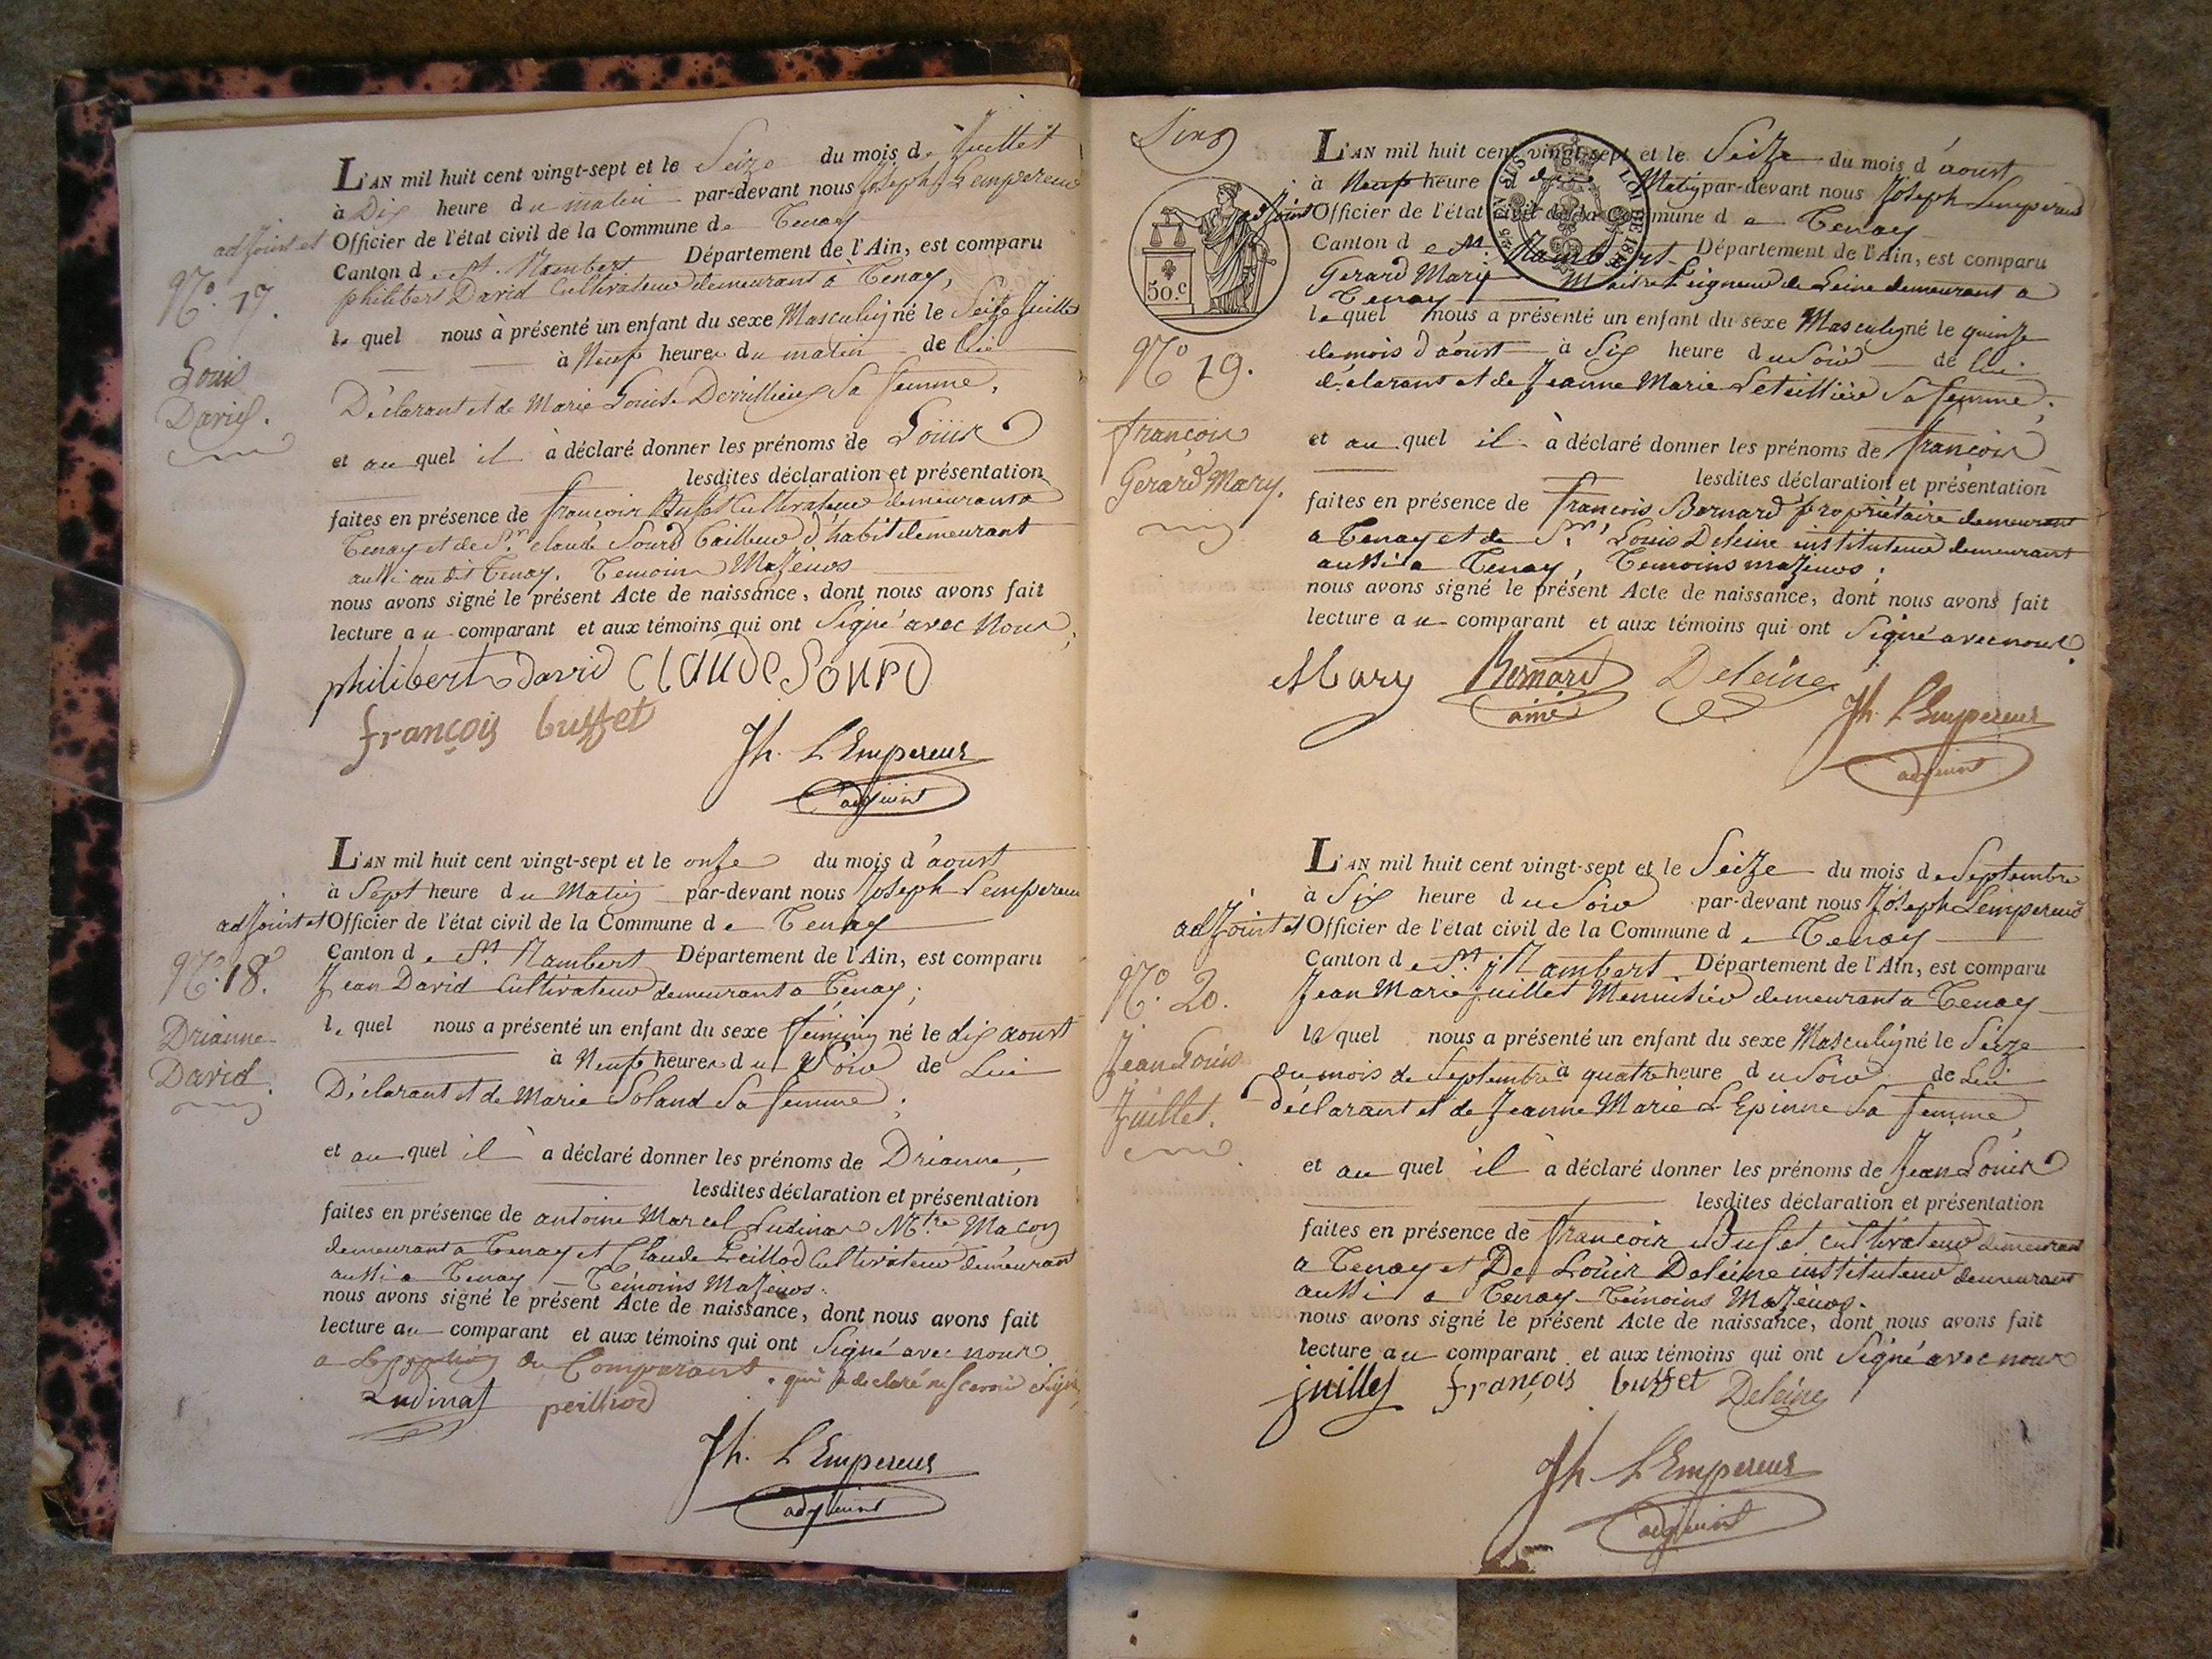 L'AN mil huit cent vingt-sept et le Seize du mois de Juillet
à Dix heure du matin par-devant nous Joseph Lempereur
adjoint et Officier de l'état civil de la Commune de Tenay
Canton de St. Rambert Département de l'Ain, est comparu
philibert David Cultivateur demeurant à Tenay,
N.o 17.
le quel nous à présenté un enfant du sexe Masculin né le Seize Juillet
à Neuf heures du matin de lui
Louis
David.
Déclarant et de Marie Louise Sa femme,
et au quel il à déclaré donner les prénoms de Louis
lesdites déclaration et présentation
faites en présence de francois Bufet Cultivateur demeurant a
Tenay et de Sr. claude Sourd Tailleur d'habit demeurant
aussi au dit Tenay. Temoins Majeurs
nous avons signé le présent Acte de naissance, dont nous avons fait
lecture au comparant et aux témoins qui ont Signé avec Nous,
philibert David CLAUDE SOURD
françois buffet
Jh. L'Empereur
adjoint
L'AN mil huit cent vingt-sept et le onze du mois d'aoust
à Sept heure du Matin par-devant nous Joseph Lempereur
adjoint et Officier de l'état civil de la Commune de Tenay
Canton de St. Rambert Département de l'Ain, est comparu
N.o 18.
Jean David Cultivateur demeurant a Tenay;
le quel nous a présenté un enfant du sexe feminin né le dix aoust
Drianne
David.
à Neuf heures du Soir de Lui
Déclarant et de Marie Soland Sa femme;
et au quel il à déclaré donner les prénoms de Drianne,
lesdites déclaration et présentation
faites en présence de antoine Marcel Ludinas Mtre Macon
demeurant a Tenay et Claude Peilliod Cultivateur demeurant
aussi a Tenay - Témoins Majeurs.
nous avons signé le présent Acte de naissance, dont nous avons fait
lecture au comparant et aux témoins qui ont Signé avec nous
a du Comparant qui a declaré ne scavoir signé
Ludinas peilliod
Jh. L'Empereur
adjoint
50.c
L'AN mil huit cent vingt-sept et le Seize du mois d'aoust
à Neuf heure du Matin par-devant nous Joseph Lempereur
adjoint Officier de l'état civil de la Commune de Tenay
Canton de St. Rambert Département de l'Ain, est comparu
Gerard Mary Maitre Peigneur de Leine demeurant a
Tenay
le quel nous a présenté un enfant du sexe Masculin né le quinze
N.o 19.
de mois d'aoust à Six heure du Soir de lui
déclarant et de Jeanne Marie Sa femme;
francois
Gerard Mary.
et au quel il à déclaré donner les prénoms de francois
lesdites déclaration et présentation
faites en présence de francois Bernard propriétaire demeurant
a Tenay et de Sr. Louis Deleine instituteur demeurant
aussi a Tenay, Temoins majeurs;
nous avons signé le présent Acte de naissance, dont nous avons fait
lecture au comparant et aux témoins qui ont Signé avec nous.
Mary Bernard Deleine
ainé
Jh. L'Empereur
adjoint
L'AN mil huit cent vingt-sept et le Seize du mois de Septembre
à Six heure du Soir par-devant nous Joseph Lempereur
adjoint et Officier de l'état civil de la Commune de Tenay
Canton de St. Rambert Département de l'Ain, est comparu
N.o 20.
Jean Marie juillet Menuisier demeurant a Tenay
le quel nous a présenté un enfant du sexe Masculin né le Seize
Jean Louis
Juillet.
du mois de Septembre à quatre heure du Soir de Lui
déclarant et de Jeanne Marie L'Epinne Sa femme,
et au quel il à déclaré donner les prénoms de Jean Louis
lesdites déclaration et présentation
faites en présence de francois Bufet cultivateur demeurant
a Tenay et De Louis Deleine instituteur demeurant
aussi a Tenay - Témoins Majeurs.
nous avons signé le présent Acte de naissance, dont nous avons fait
lecture au comparant et aux témoins qui ont Signé avec nous
juillet françois buffet Deleine
Jh L'Empereur
adjoint